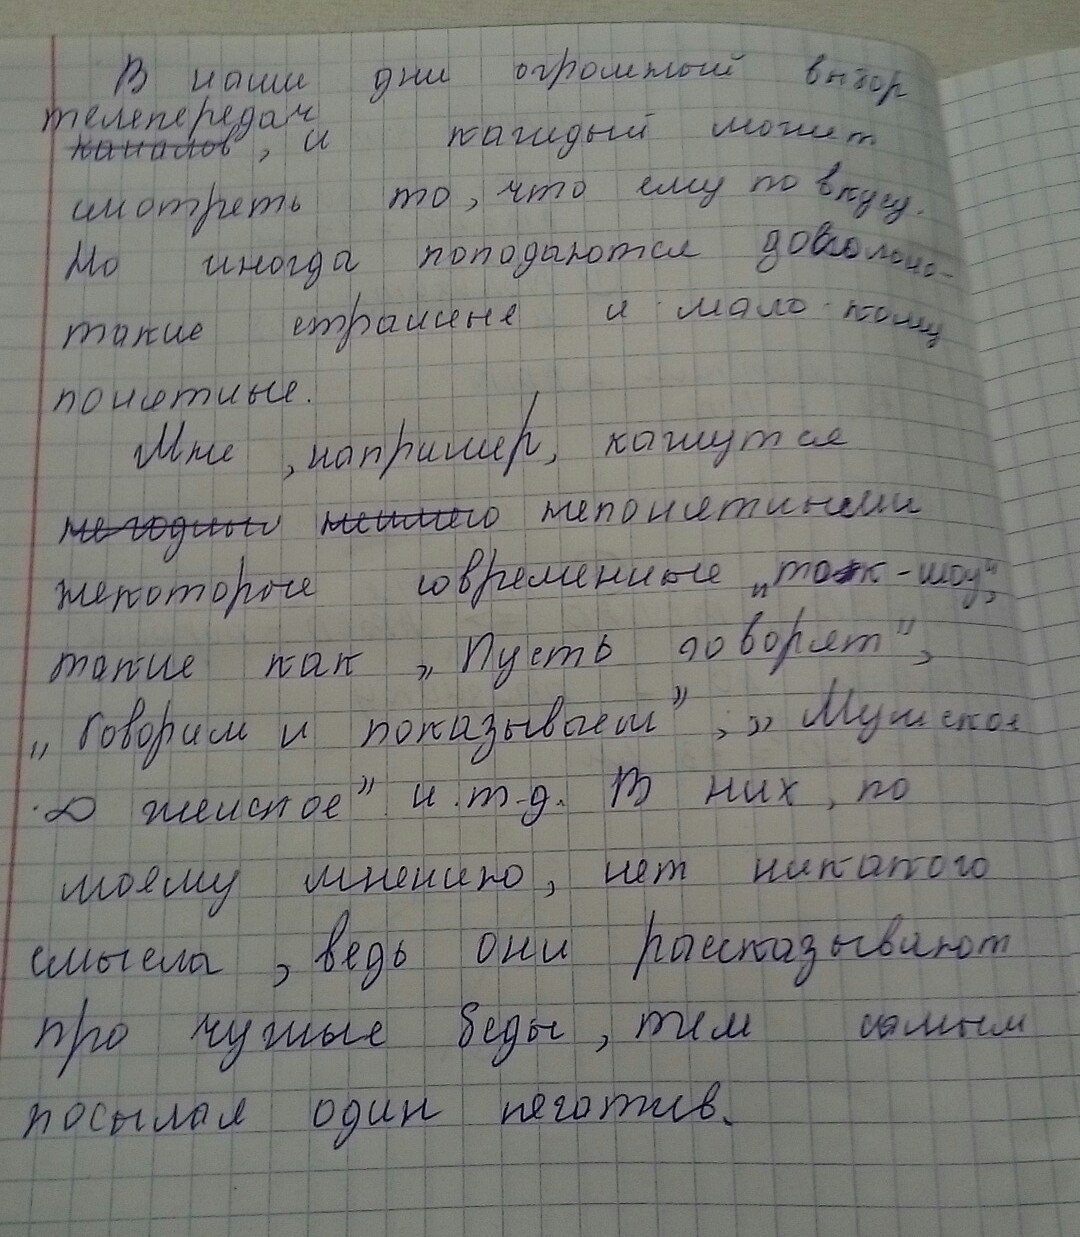 В наши дни огромный выбор
телепередач
каналов, и каждый может
смотреть то, что ему по вкусу.
Но иногда пoпoдаются довольно-
такие странные и мало кому
понятные.
Мне, например, кажутся
непонятными
некоторые современные „ток-шоу",
такие как „Пусть говорят",
„Говорим и показываем", „Мужское
женское" и.т.д. В них, по
моему мнению, нет никакого
смысла, ведь они рассказывают
про чужые беды, тем самым
посылая один негатив.